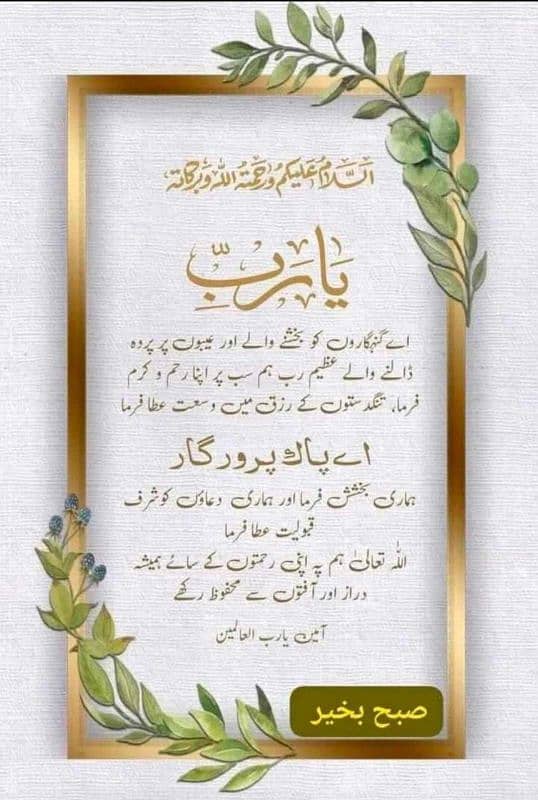 السلام علیکم ورحمتہ اللہ وبرکاتہ
یَا رَبِّ
اے گنہگاروں کو بخشنے والے اور عیبوں پر پردہ
ڈالنے والے عظیم رب ہم سب پر اپنا رحم و کرم
فرما، تنگدستوں کے رزق میں وسعت عطا فرما
اے پاک پرورگار
ہماری بخشش فرما اور ہماری دعاؤں کو شرف
قبولیت عطا فرما
اللہ تعالیٰ ہم پہ اپنی رحمتوں کے سائے ہمیشہ
دراز اور آفتوں سے محفوظ رکھے
آمین یارب العالمین
صبح بخیر